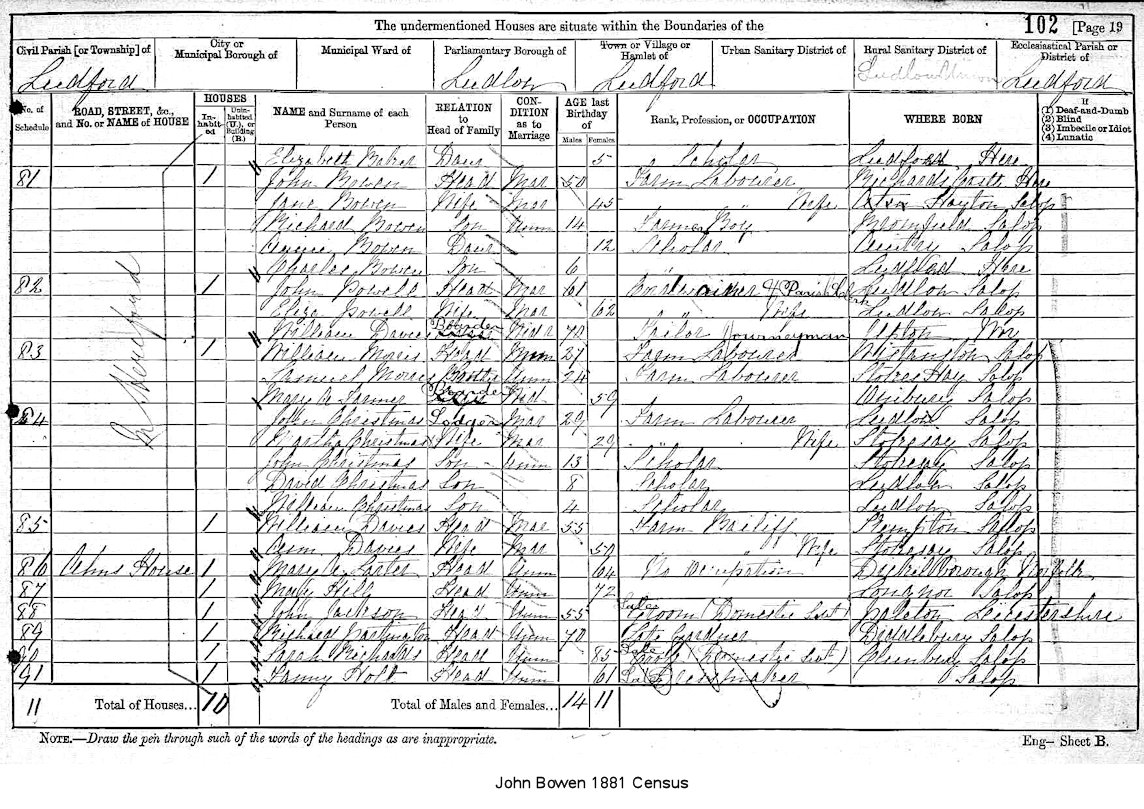 The undermentioned Houses are situate within the Boundaries of the
102 [Page 19
Civil Parish [or Township] of
City or Municipal Borough of
Municipal Ward of
Parliamentary Borough of
Town or Village or Hamlet of
Urban Sanitary District of
Rural Sanitary District of
Ecclesiastical Parish or District of
Ludford Ludlow Ludford Ludlow Union Ludford
No. of Schedule
ROAD, STREET, &c., and No. or NAME of HOUSE
HOUSES
In-habit-ed
Unin-habited (U.), or Building (B.)
NAME and Surname of each Person
RELATION to Head of Family
CON-DITION as to Marriage
AGE last Birthday of
Males Females
Rank, Profession, or OCCUPATION
WHERE BORN
If
(1) Deaf-and-Dumb
(2) Blind
(3) Imbecile or Idiot
(4) Lunatic
Elizabeth Daur 5 Scholar Ludford Here
81 1 John Bowen Head Mar 50 Farm Labourer Richards Castle Here
Jane Bowen Wife Mar 45 " Wife Salop
Richard Bowen Son Unm 14 Farmer Boy Bromfield Salop
Annie Bowen Daur 12 Scholar Salop
Charles Bowen Son 6 " Ludford Here
82 1 John Powell Head Mar 61 Cordwainer & Parish Clerk Ludlow Salop
Eliza Powell Wife Mar 62 " Wife Ludlow Salop
William Davies Boarder Widr 70 Tailor Journeyman
83 1 William Morris Head Unm 27 Farm Labourer Wistanstow Salop
Morris Brother Unm 24 Farm Labourer Salop
Mary A Farmer Boarder Wid 59 Onibury Salop
84 John Christmas Lodger Mar 29 Farm Labourer Ludlow Salop
Martha Christmas Wife Mar 29 " Wife Stokesay Salop
John Christmas Son Unm 13 Scholar Stokesay Salop
David Christmas Son 8 Scholar Ludlow Salop
William Christmas Son 4 Scholar Ludlow Salop
85 1 William Davies Head Mar 55 Farm Bailiff Salop
Ann Davies Wife Mar 50 " Wife Stokesay Salop
86 Alms House 1 Mary A Lister Head Unm 64 No Occupation Norfolk
87 1 Mary Head Unm 72 Longnor Salop
88 1 John Jackson Head Unm 55 Late Groom (Domestic Servt) Leicestershire
89 1 Richard Head Unm 70 Late Gardner Diddlebury Salop
90 1 Sarah Richards Head Unm 85 Late Cook (Domestic Servt) Salop
91 1 Fanny Holt Head Unm 61 Dressmaker Salop
R Hereford
11 Total of Houses... 10 Total of Males and Females... 14 11
NOTE.—Draw the pen through such of the words of the headings as are inappropriate.
Eng— Sheet B.
John Bowen 1881 Census